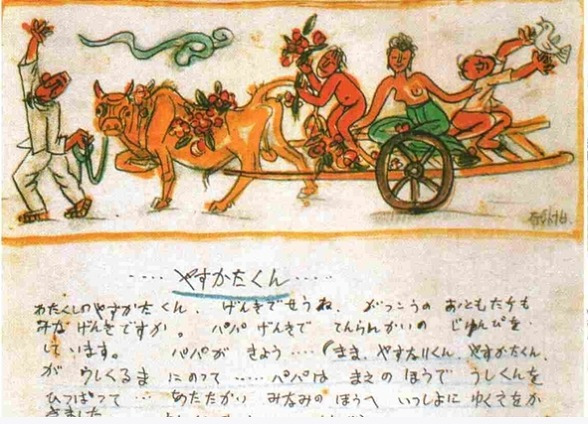 やすかたくん
わたくしの やすかた くん、 げんきでせうね、 がっこうの おともたちも
みな げんきですか。 パパ げんきで てんらんかいの じゅんびを
しています。 パパが きょう ‥‥ (まま、 やすなりくん、 やすかたくん、
が ウしくるま にのって ‥‥‥ パパは まえの ほうで うしくんを
ひっぱって ‥‥ あたたかい みなみの ほうへ いっしょに ゆくさをか
きました